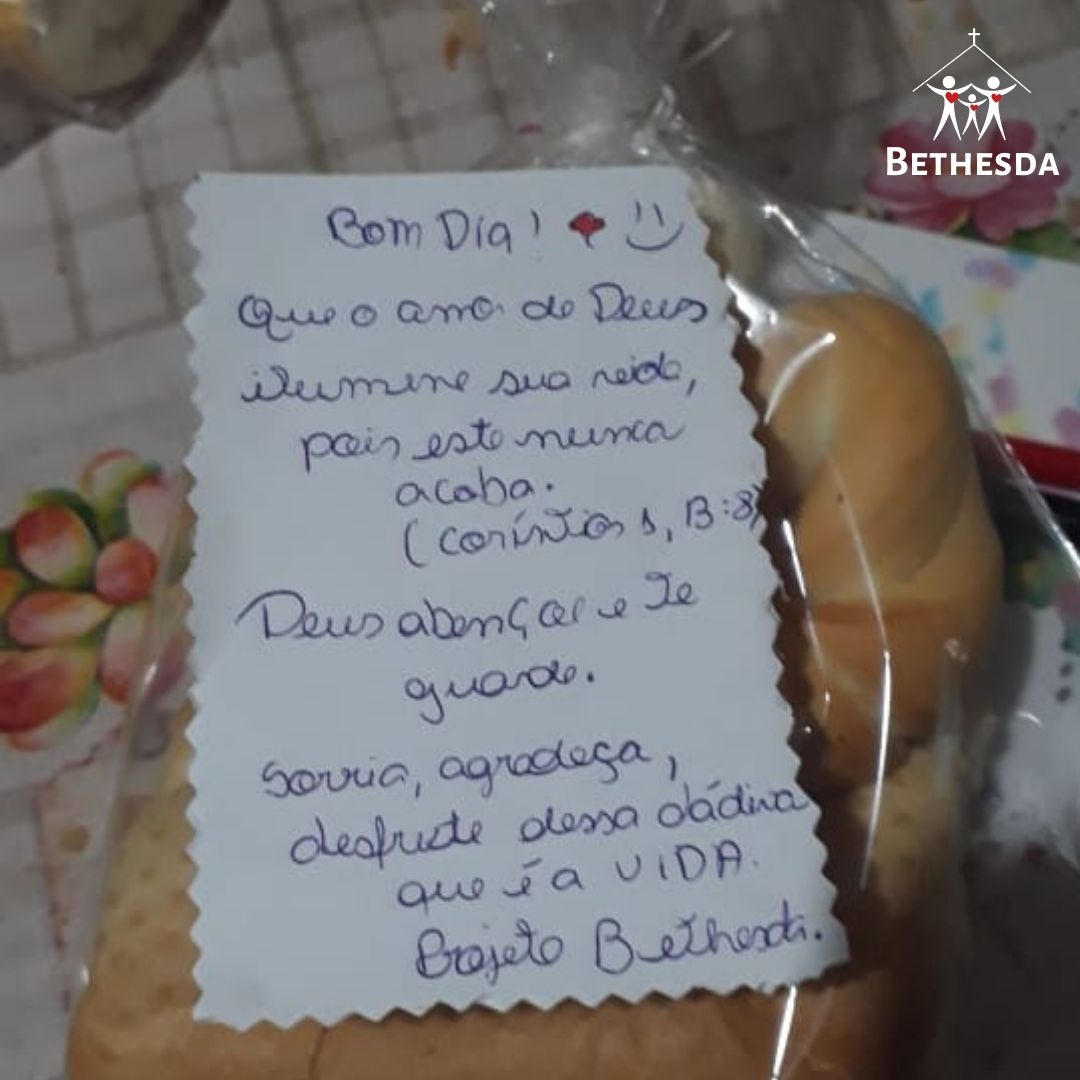 BETHESDA
Bom Dia!
Que o amor de Deus
ilumine sua vida,
pois este nunca
acaba.
(coríntios 1, 13:8)
Deus abençoe e te
guarde.
Sorria, agradeça,
desfrute dessa dádiva
que é a VIDA.
Projeto Bethesda.